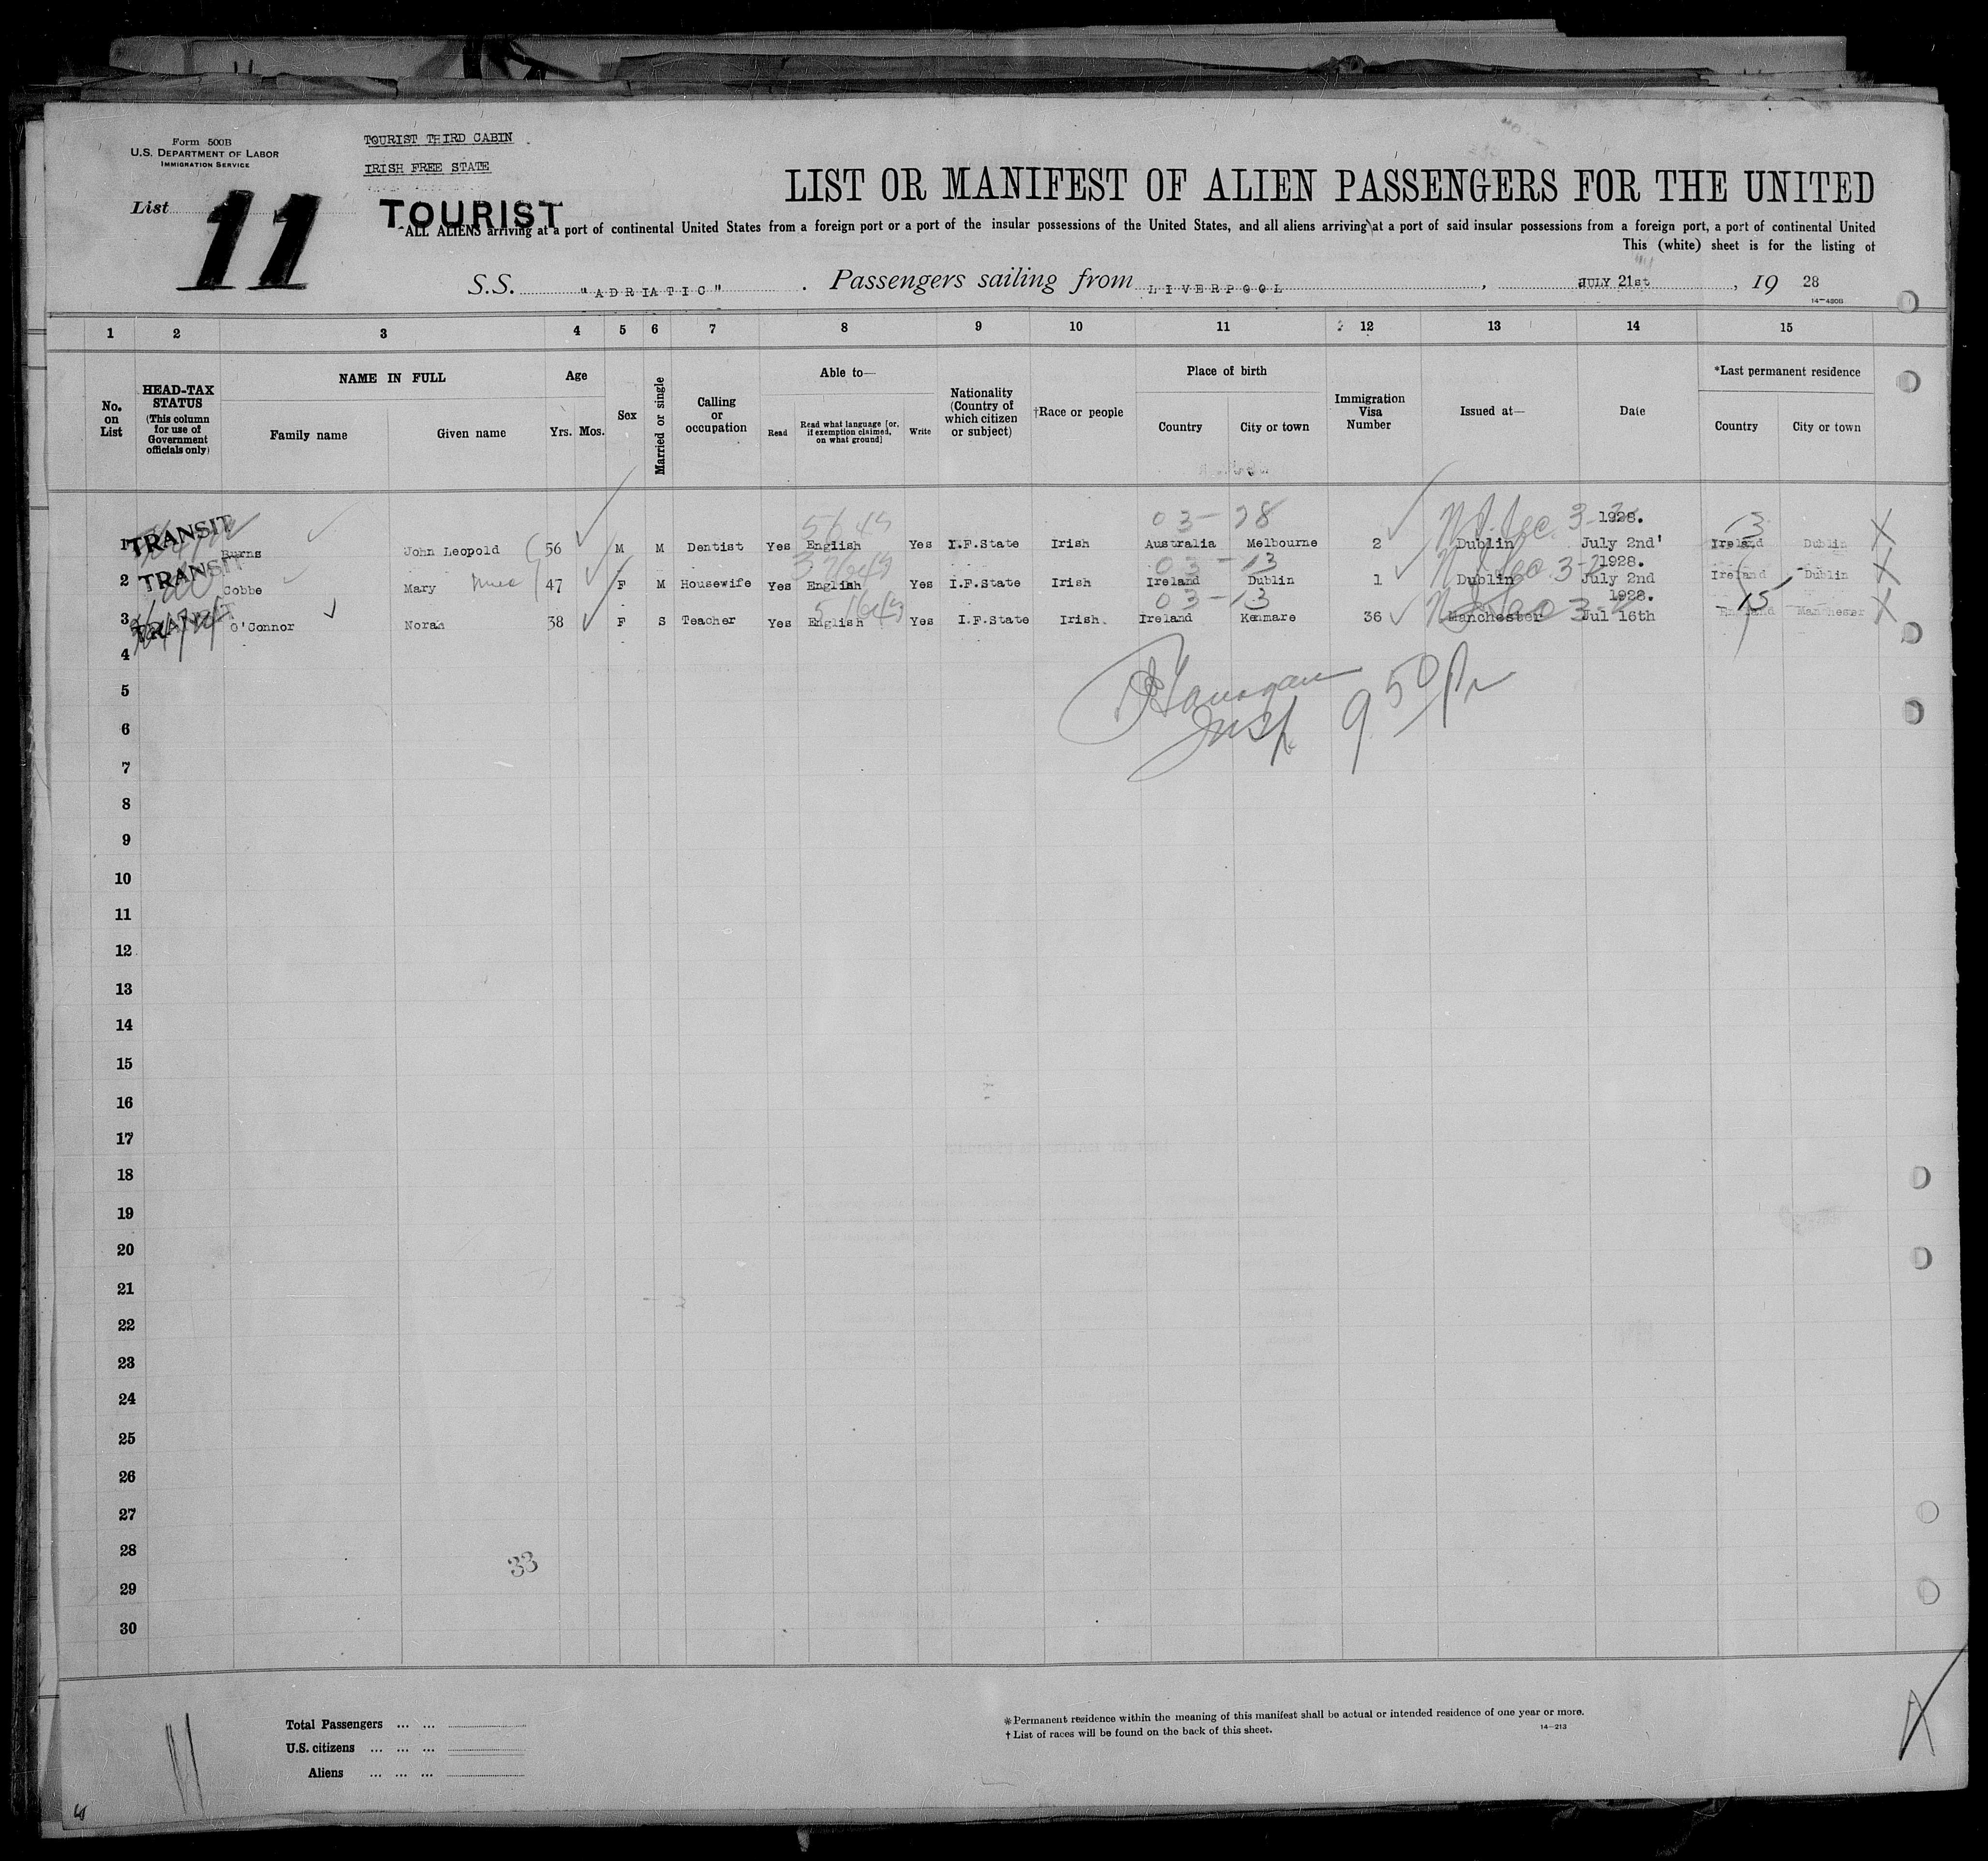 Form 500B
U.S. DEPARTMENT OF LABOR
IMMIGRATION SERVICE
TOURIST THIRD CABIN
IRISH FREE STATE
List 11
TOURIST
LIST OR MANIFEST OF ALIEN PASSENGERS FOR THE UNITED
ALL ALIENS arriving at a port of continental United States from a foreign port or a port of the insular possessions of the United States, and all aliens arriving at a port of said insular possessions from a foreign port, a port of continental United
This (white) sheet is for the listing of
S.S. "ADRIATIC" . Passengers sailing from LIVERPOOL , JULY 21st , 19 28
14-480B
1 2 3 4 5 6 7 8 9 10 11 12 13 14 15
No. on List
HEAD-TAX STATUS (This column for use of Government officials only)
NAME IN FULL
Family name
Given name
Age
Yrs. Mos.
Sex
Married or single
Calling or occupation
Able to—
Read
Read what language [or, if exemption claimed, on what ground]
Write
Nationality (Country of which citizen or subject)
†Race or people
Place of birth
Country
City or town
Immigration Visa Number
Issued at—
Date
*Last permanent residence
Country
City or town
03-28 1928. 3
1 TRANSIT Burns John Leopold 56 M M Dentist Yes English Yes I.F.State Irish Australia Melbourne 2 Dublin July 2nd' Ireland Dublin X
03-13 1928.
2 TRANSIT Cobbe Mary 47 F M Housewife Yes English Yes I.F.State Irish Ireland Dublin 1 Dublin July 2nd Ireland Dublin X
03-13 1928. 15
3 TRANSIT O'Connor Norah 38 F S Teacher Yes English Yes I.F.State Irish. Ireland Kenmare 36 Manchester Jul 16th England Manchester X
4
5
Insp. 9 50
6
7
8
9
10
11
12
13
14
15
16
17
18
19
20
21
22
23
24
25
26
27
28
33
29
30
Total Passengers ... ...
U.S. citizens ... ... ...
Aliens ... ... ...
* Permanent residence within the meaning of this manifest shall be actual or intended residence of one year or more.
† List of races will be found on the back of this sheet.
14-213